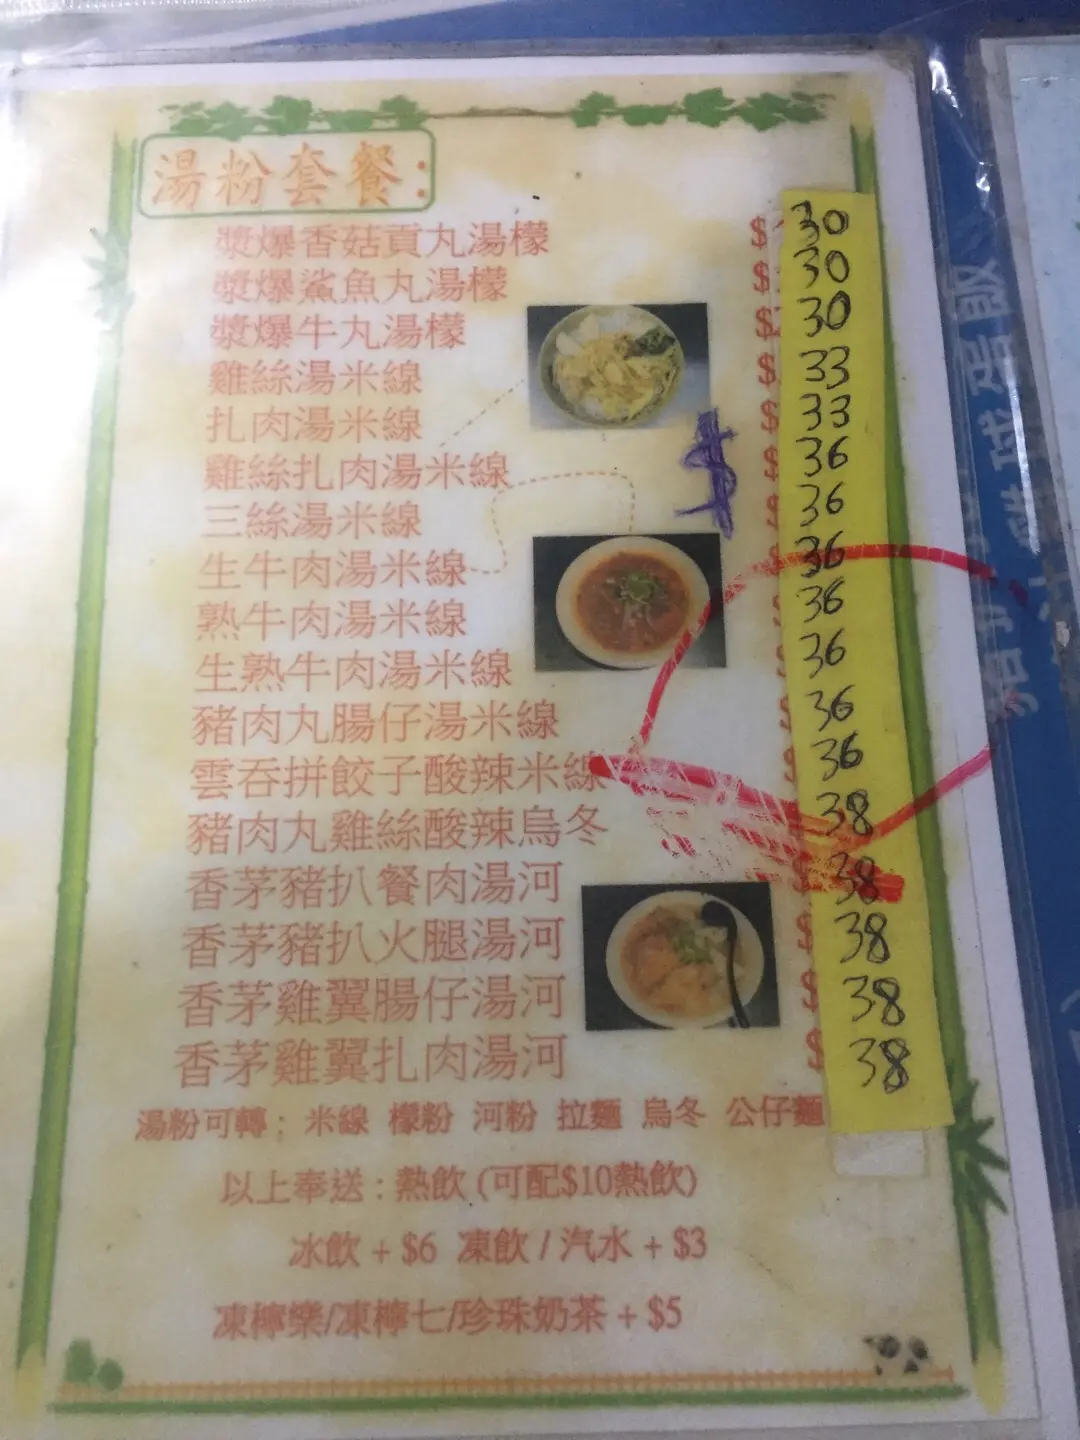 湯粉套餐:
漿爆香菇貢丸湯檬 $ 30
漿爆鯊魚丸湯檬 $ 30
漿爆牛丸湯檬 $ 30
雞絲湯米線 $ 33
扎肉湯米線 $ 33
雞絲扎肉湯米線 $ 36
三絲湯米線 36
生牛肉湯米線 36
熟牛肉湯米線 36
生熟牛肉湯米線 36
豬肉丸腸仔湯米線 36
雲吞拼餃子酸辣米線 36
豬肉丸雞絲酸辣烏冬 38
香茅豬扒餐肉湯河 $ 38
香茅豬扒火腿湯河 $ 38
香茅雞翼腸仔湯河 $ 38
香茅雞翼扎肉湯河 $ 38
$
湯粉可轉: 米線 檬粉 河粉 拉麵 烏冬 公仔麵
以上奉送:熱飲 (可配$10熱飲)
冰飲 + $6 凍飲 / 汽水 + $3
凍檸樂/凍檸七/珍珠奶茶 + $5